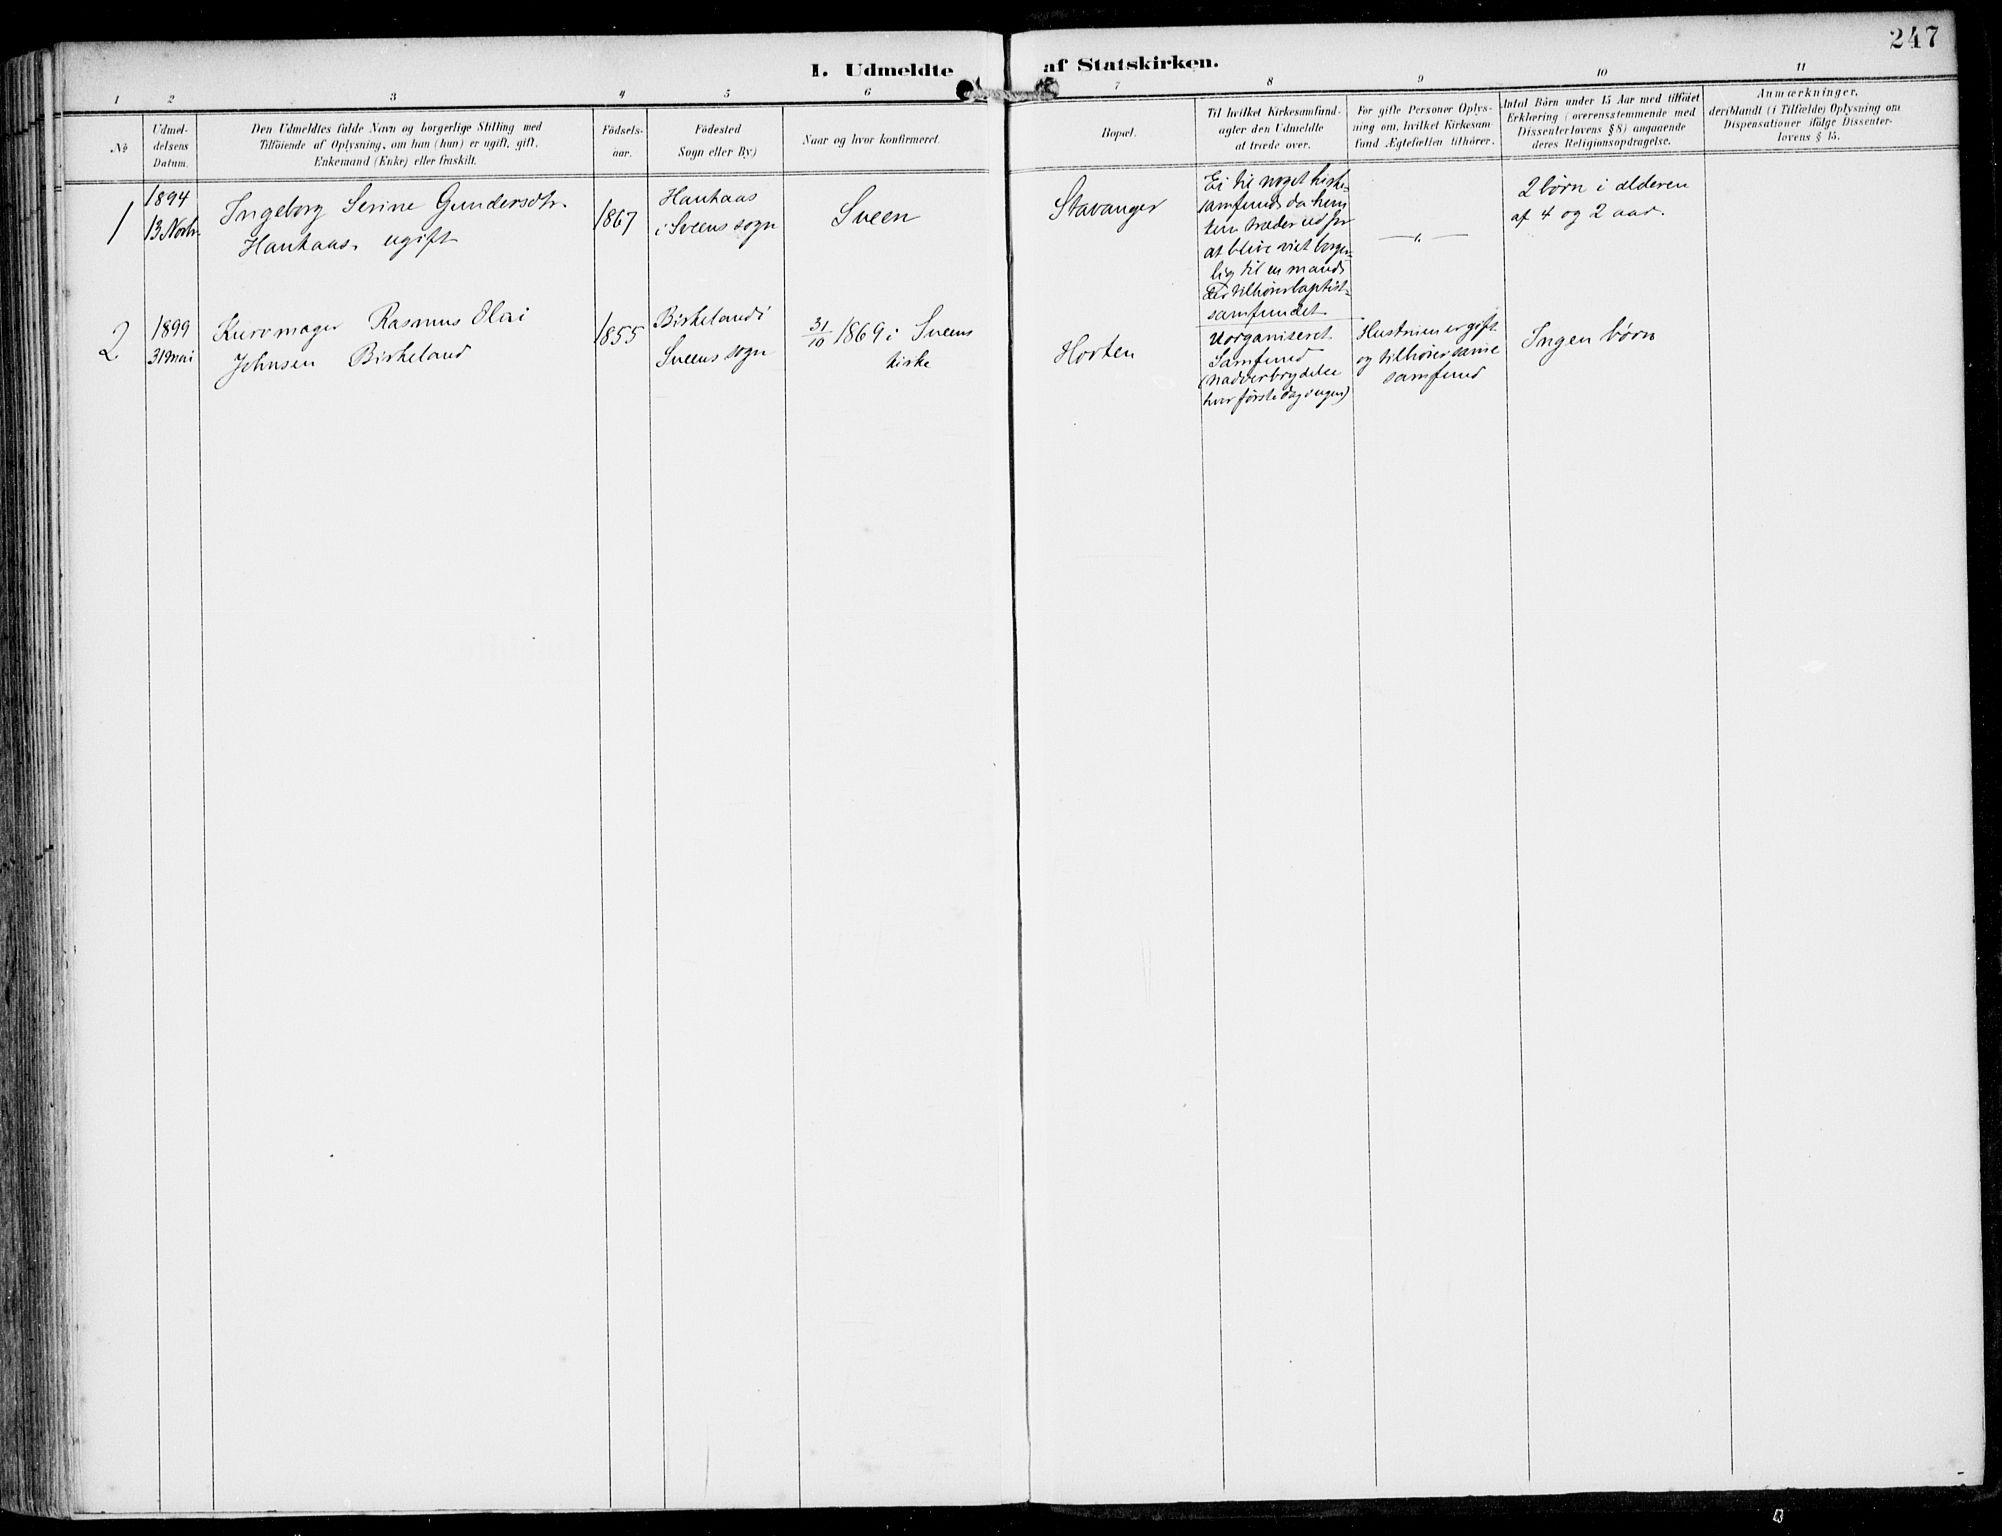 247
I. Udmeldte af Statskirken.
1 2 3 4 5 6 7 8 9 10 11
No
Udmel-
delsens
Datum.
Den Udmeldtes fulde Navn og borgerlige Stilling med
Tilföiende af Oplysning, om han (hun) er ugift, gift,
Enkemand (Enke) eller fraskilt.
Födsels-
aar.
Födested
Sogn eller By)
Naar og hvor konfirmeret.
Bopæl.
Til hvilket Kirkesamfund
agter den Udmeldte
at træde over.
For gifte Personer Oplys-
ning om, hvilket Kirkesam-
fund Ægtefællen tilhörer.
Antal Börn under 15 Aar med tilföiet
Erklæring (overensstemmende med
Dissenterlovens § 8) angaaende
deres Religionsopdragelse.
Anmærkninger,
deriblandt (i Tilfælde) Oplysning om
Dispensationer ifölge Dissenter-
lovens § 15.
1
1894
13 Novbr.
Ingeborg Serine Gundersdtr.
Haukaas, ugift
1867
Haukaas
i Sveens sogn
Sveen
Stavanger
Ei til noget kirke-
samfund, da hen
træder ud for
at blive viet borger-
lig til en mand
der tilhører baptist-
samfundet.
—"—
2 børn i alderen
af 4 og 2 aar.
2
1899
31 mai
Kurvmager Rasmus Olai
Johnsen Birkeland
1855
Birkeland i
Sveens sogn
31/10 1869 i Sveens
kirke
Horten
Uorganiseret
Samfund
(nadverbrydelse
hver første dag i ugen)
Hustruen er gift
og tilhører samme
samfund
Ingen børn